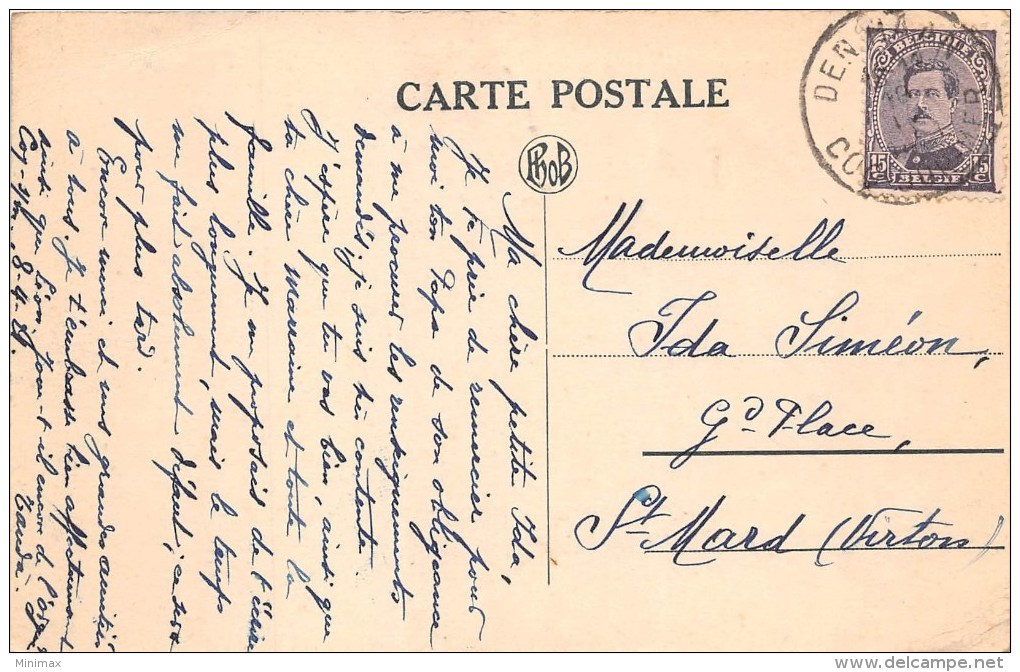 CARTE POSTALE
DEN
CO
BELGIQUE
15 C
15 C
BELGIË
PhoB
Mademoiselle
Ida Siméon,
Gd. Place,
St. Mard (Virton)
Ma chère petite Ida,
Je te prie de remercier pour
moi ton Papa de son obligeance
à me procurer les renseignements
demandés, je suis très contente
J'espère que tu vas bien, ainsi que
ta chère Marraine et toute la
famille. Je me proposais de t'écrire
plus longuement, mais le temps
me fait absolument défaut; ce sera
pour plus tard.
Encore merci et mes grandes amitiés
à tous. Je t'embrasse bien affectueusement
ainsi que Léon. Joue-t-il encor de l'orgue
8-4-
Minimax
delcampe.net